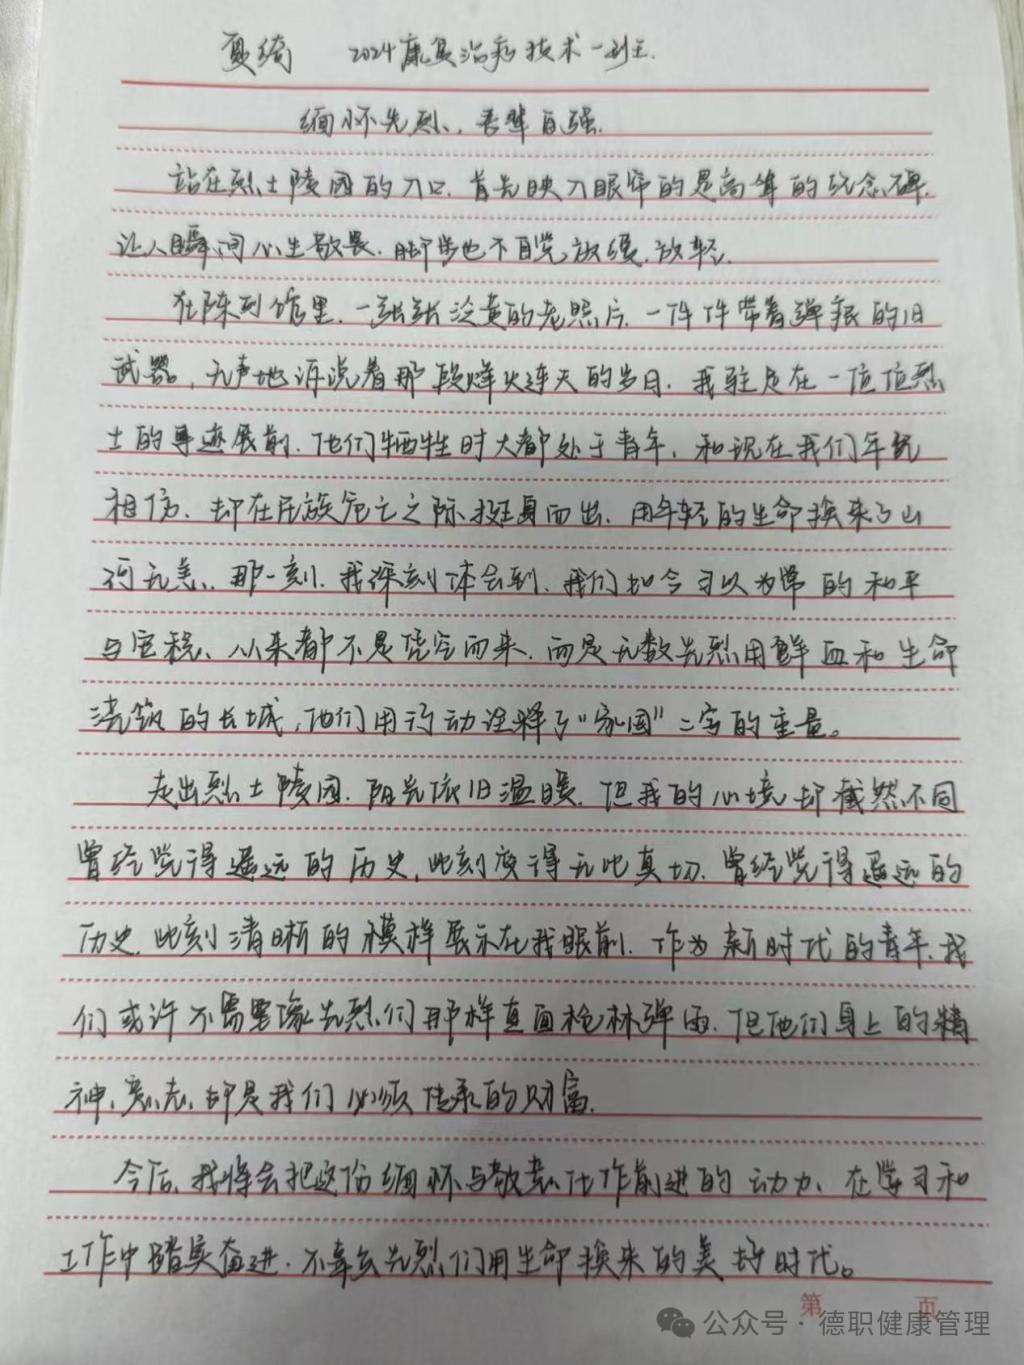 夏绮 2024康复治疗技术一班
缅怀先烈，吾辈自强.
站在烈士陵园的入口.首先映入眼帘的是高耸的纪念碑.
让人瞬间心生敬畏.脚步也不自觉放缓.放轻.
在陈列馆里.一张张泛黄的老照片.一件件带着弹痕的旧
武器，无声地诉说着那段烽火连天的岁月.我驻足在一位位烈
士的事迹展前.他们牺牲时大都处于青年，和现在我们年纪
相仿、却在民族危亡之际挺身而出.用年轻的生命换来了山
河无恙.那一刻.我深刻体会到.我们如今习以为常的和平
与安稳、从来都不是凭空而来.而是无数先烈用鲜血和生命
浇筑的长城，他们用行动诠释了“家国”二字的重量。
走出烈士陵园.阳光依旧温暖.但我的心境却截然不同
曾经觉得遥远的历史，此刻变得无比真切.曾经觉得遥远的
历史.此刻清晰的模样展示在我眼前.作为新时代的青年.我
们或许不需要像先烈们那样直面枪林弹雨.但他们身上的精
神、意志、却是我们必须传承的财富.
今后、我将会把这份缅怀与敬意化作前进的动力、在学习和
工作中踏实奋进.不辜负先烈们用生命换来的美好时代。
第 页
公众号·德职健康管理